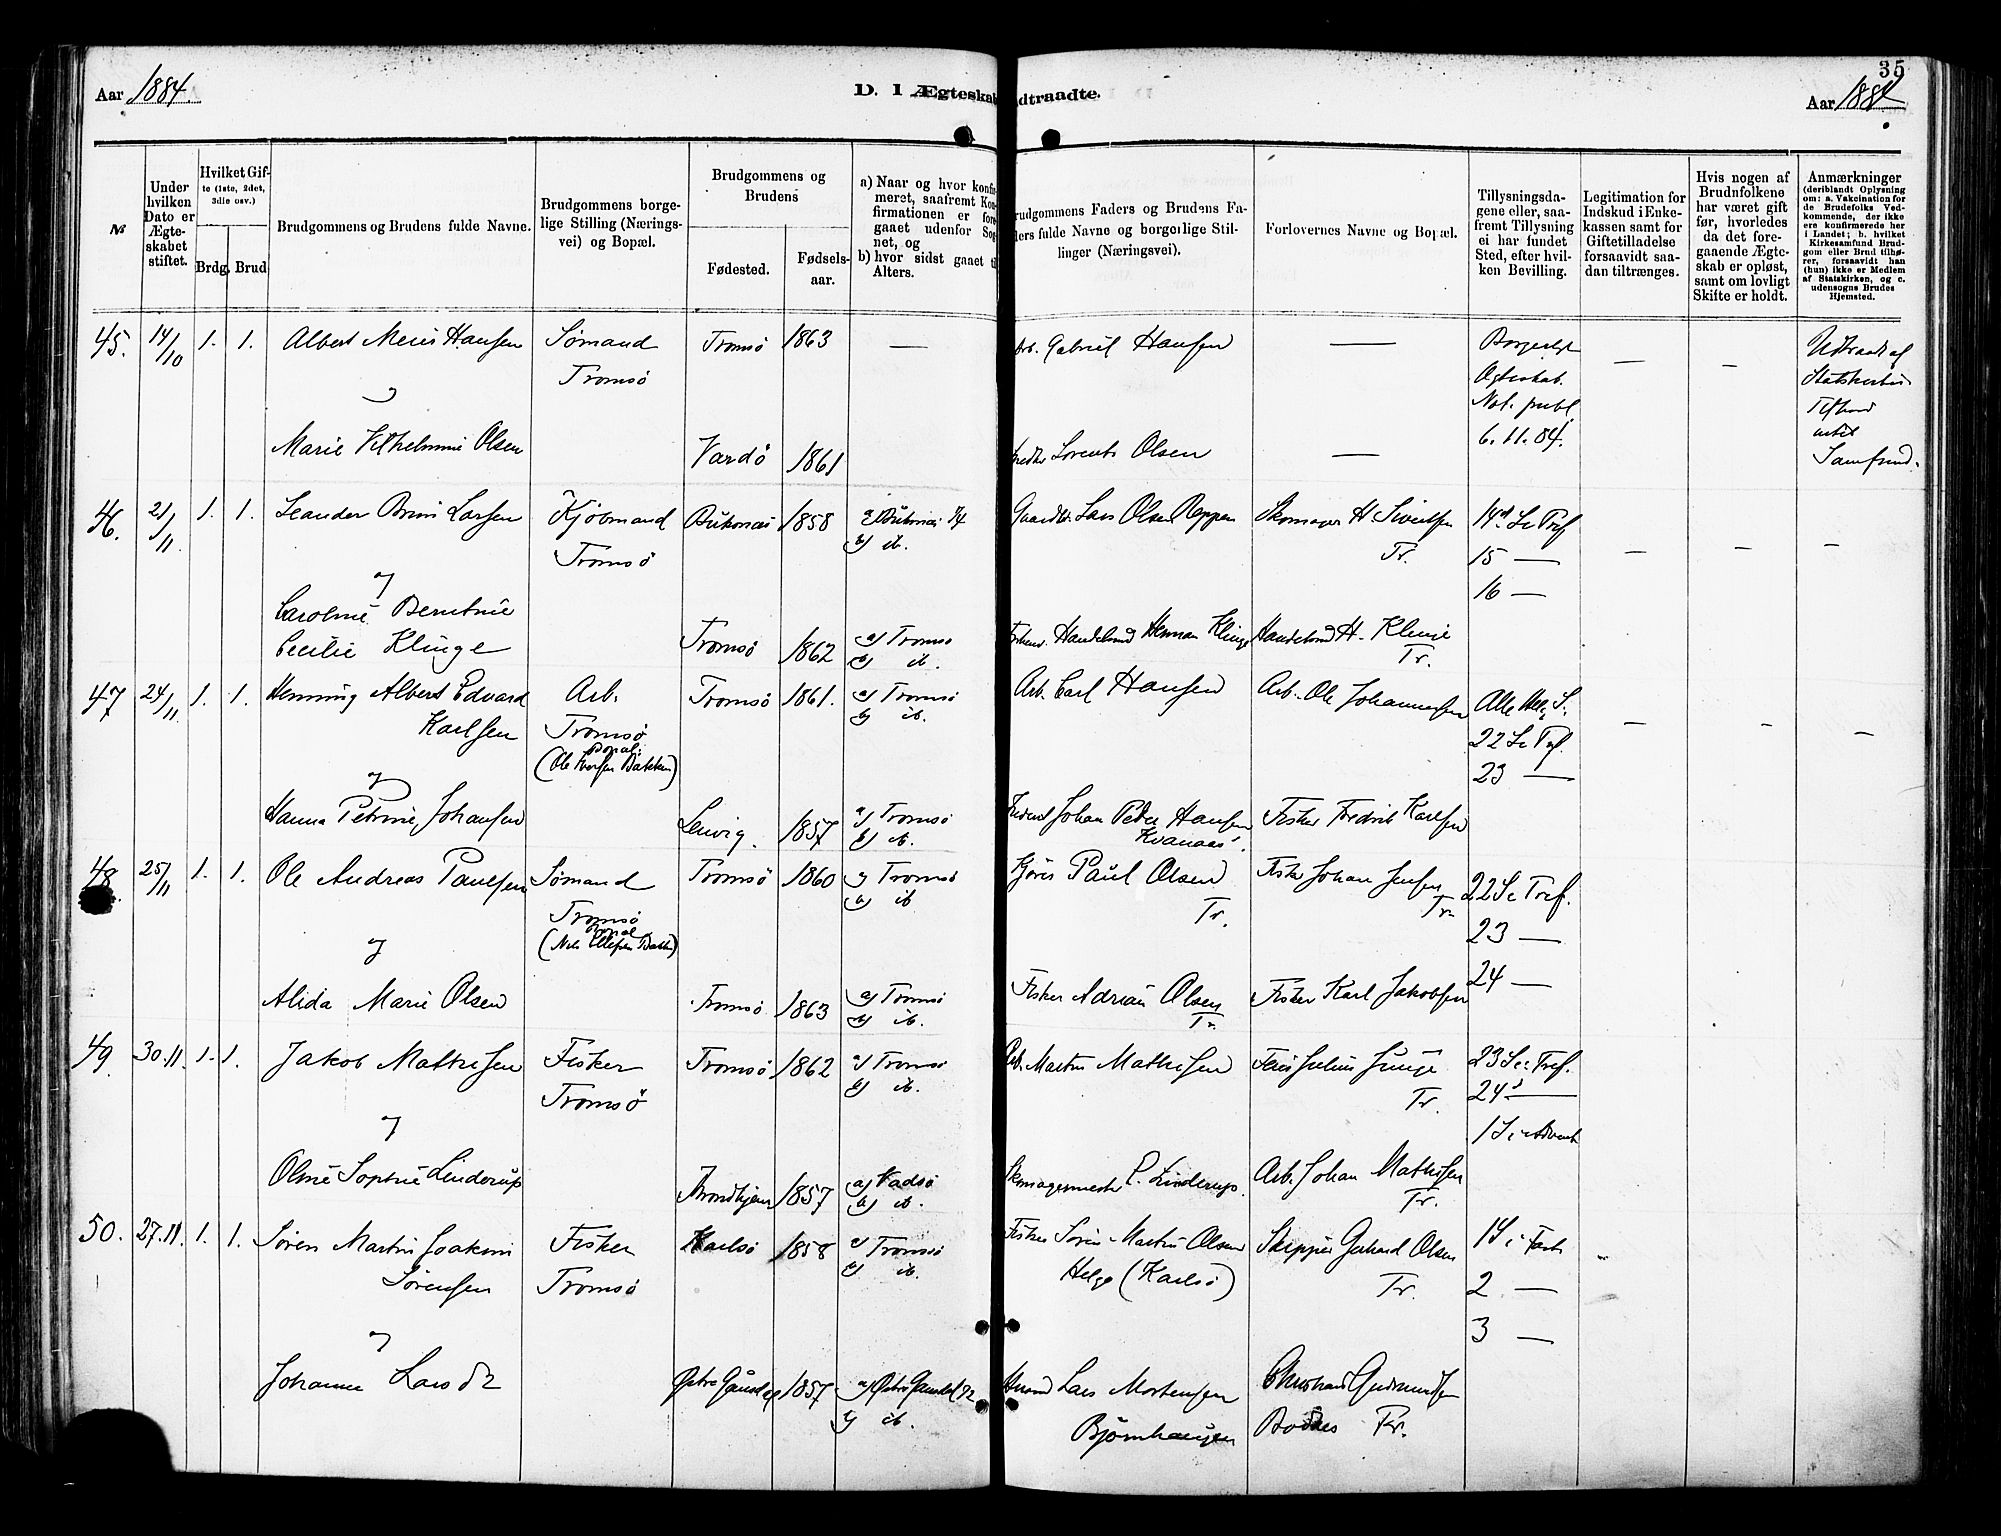 35
Aar 1884.
D. I Ægteskab indtraadte.
Aar 1884
№
Under hvilken Dato er Ægteskabet stiftet.
Hvilket Gifte (1ste, 2det, 3die osv.)
Brdg. Brud
Brudgommens og Brudens fulde Navne.
Brudgommens borgelige Stilling (Næringsvei) og Bopæl.
Brudgommens og Brudens
Fødested.
Fødselsaar.
a) Naar og hvor konfirmeret, saafremt Konfirmationen er foregaaet udenfor Sognet, og
b) hvor sidst gaaet til Alters.
Brudgommens Faders og Brudens Faders fulde Navne og borgerlige Stillinger (Næringsvei).
Forlovernes Navne og Bopæl.
Tillysningsdagene eller, saafremt Tillysning ei har fundet Sted, efter hvilken Bevilling.
Legitimation for Indskud i Enkekassen samt for Giftetilladelse forsaavidt saadan tiltrænges.
Hvis nogen af Brudnfolkene har været gift før, hvorledes da det foregaaende Ægteskab er opløst, samt om lovligt Skifte er holdt.
Anmærkninger (deriblandt Oplysning om: a. Vakcination for de Brudefolks Vedkommende, der ikke ere konfirmerede her i Landet; b. hvilket Kirkesamfund Brudgom eller Brud tilhører, forsaavidt han (hun) ikke er Medlem af Statskirken, og c. udensogns Brudes Hjemsted.
45. 14/10 1. 1. Albert Meier Hansen Sømand Tromsø 1863 — Arb. Gabriel Hansen — Borgerligt — — Udtraadt af
Tromsø Ægteskab. Statskirken
og Not. publ. Tilhører
Marie Vilhelmine Olsen Vardø 1861 Lorents Olsen — 6.11.84. intet
Samfund.
46. 21/11 1. 1. Leander Brun Larsen Kjøbmand Buksnæs 1858 a) Buksnæs 74 Gaardbr. Lars Olsen Reppen Skomager H. Sivertsen 14d S. e. Tref — — —
Tromsø b) ib. Tr. 15 —
og 16 —
Caroline Berntine
Cecilie Klinge Tromsø 1862 a) Tromsø Handelsmd Herman Klinge Handelsmd H. Klinge
b) ib. Tr.
47 24/11 1. 1. Henning Albert Edvard Arb. Tromsø 1861. a) Tromsø Arb. Carl Hansen Arb. Ole Johannessen Alle Hel. S.
Karlsen Tromsø b) ib. 22 S. e. Tref. — — —
(Ole Iversen Bakken) 23 —
og
Hanna Petrine Johansen Lenvig. 1857 a) Tromsø Johan Peder Hansen Fisker Fredrik Karlsen
b) ib. Kvanaas.
48 25/11 1. 1. Ole Andreas Paulsen Sømand Tromsø 1860 a) Tromsø Paul Olsen Fisker Johan Jensen 22 S. e. Tref.
Tromsø b) ib Tr. Tr. 23 —
og
Alida Marie Olsen Tromsø 1863 a) Tromsø Fisker Adrian Olsen Fisker Karl Jakobsen 24 —
b) ib. Tr.
49. 30.11. 1. 1. Jakob Mathisen Fisker Tromsø 1862 a) Tromsø Arb. Martin Mathisen Julius Junge 23 S. e. Tref.
Tromsø b) ib. Tr. 24 —
og 1 S. i Advent
Oline Sophie Linderup Trondhjem 1857 a) Vadsø Skomagermester P. Linderup. Arb. Johan Mathisen
b) ib. Tr.
50. 27.11. 1. 1. Søren Martin Joakim Fisker Karlsø 1858 a) Tromsø Fisker Søren Martin Olsen Skipper Gerhard Olsen 1 S. i Fast.
Sørensen Tromsø b) ib. Helgø (Karlsø) Tr. 2 —
og 3 —
Johanne Larsdr Østre Gausdal 1857 a) Østre Gausdal 72 Husmd Lars Mortensen Christian Gudmundsen
b) ib. Bjørnhaugen Bodnes Tr.